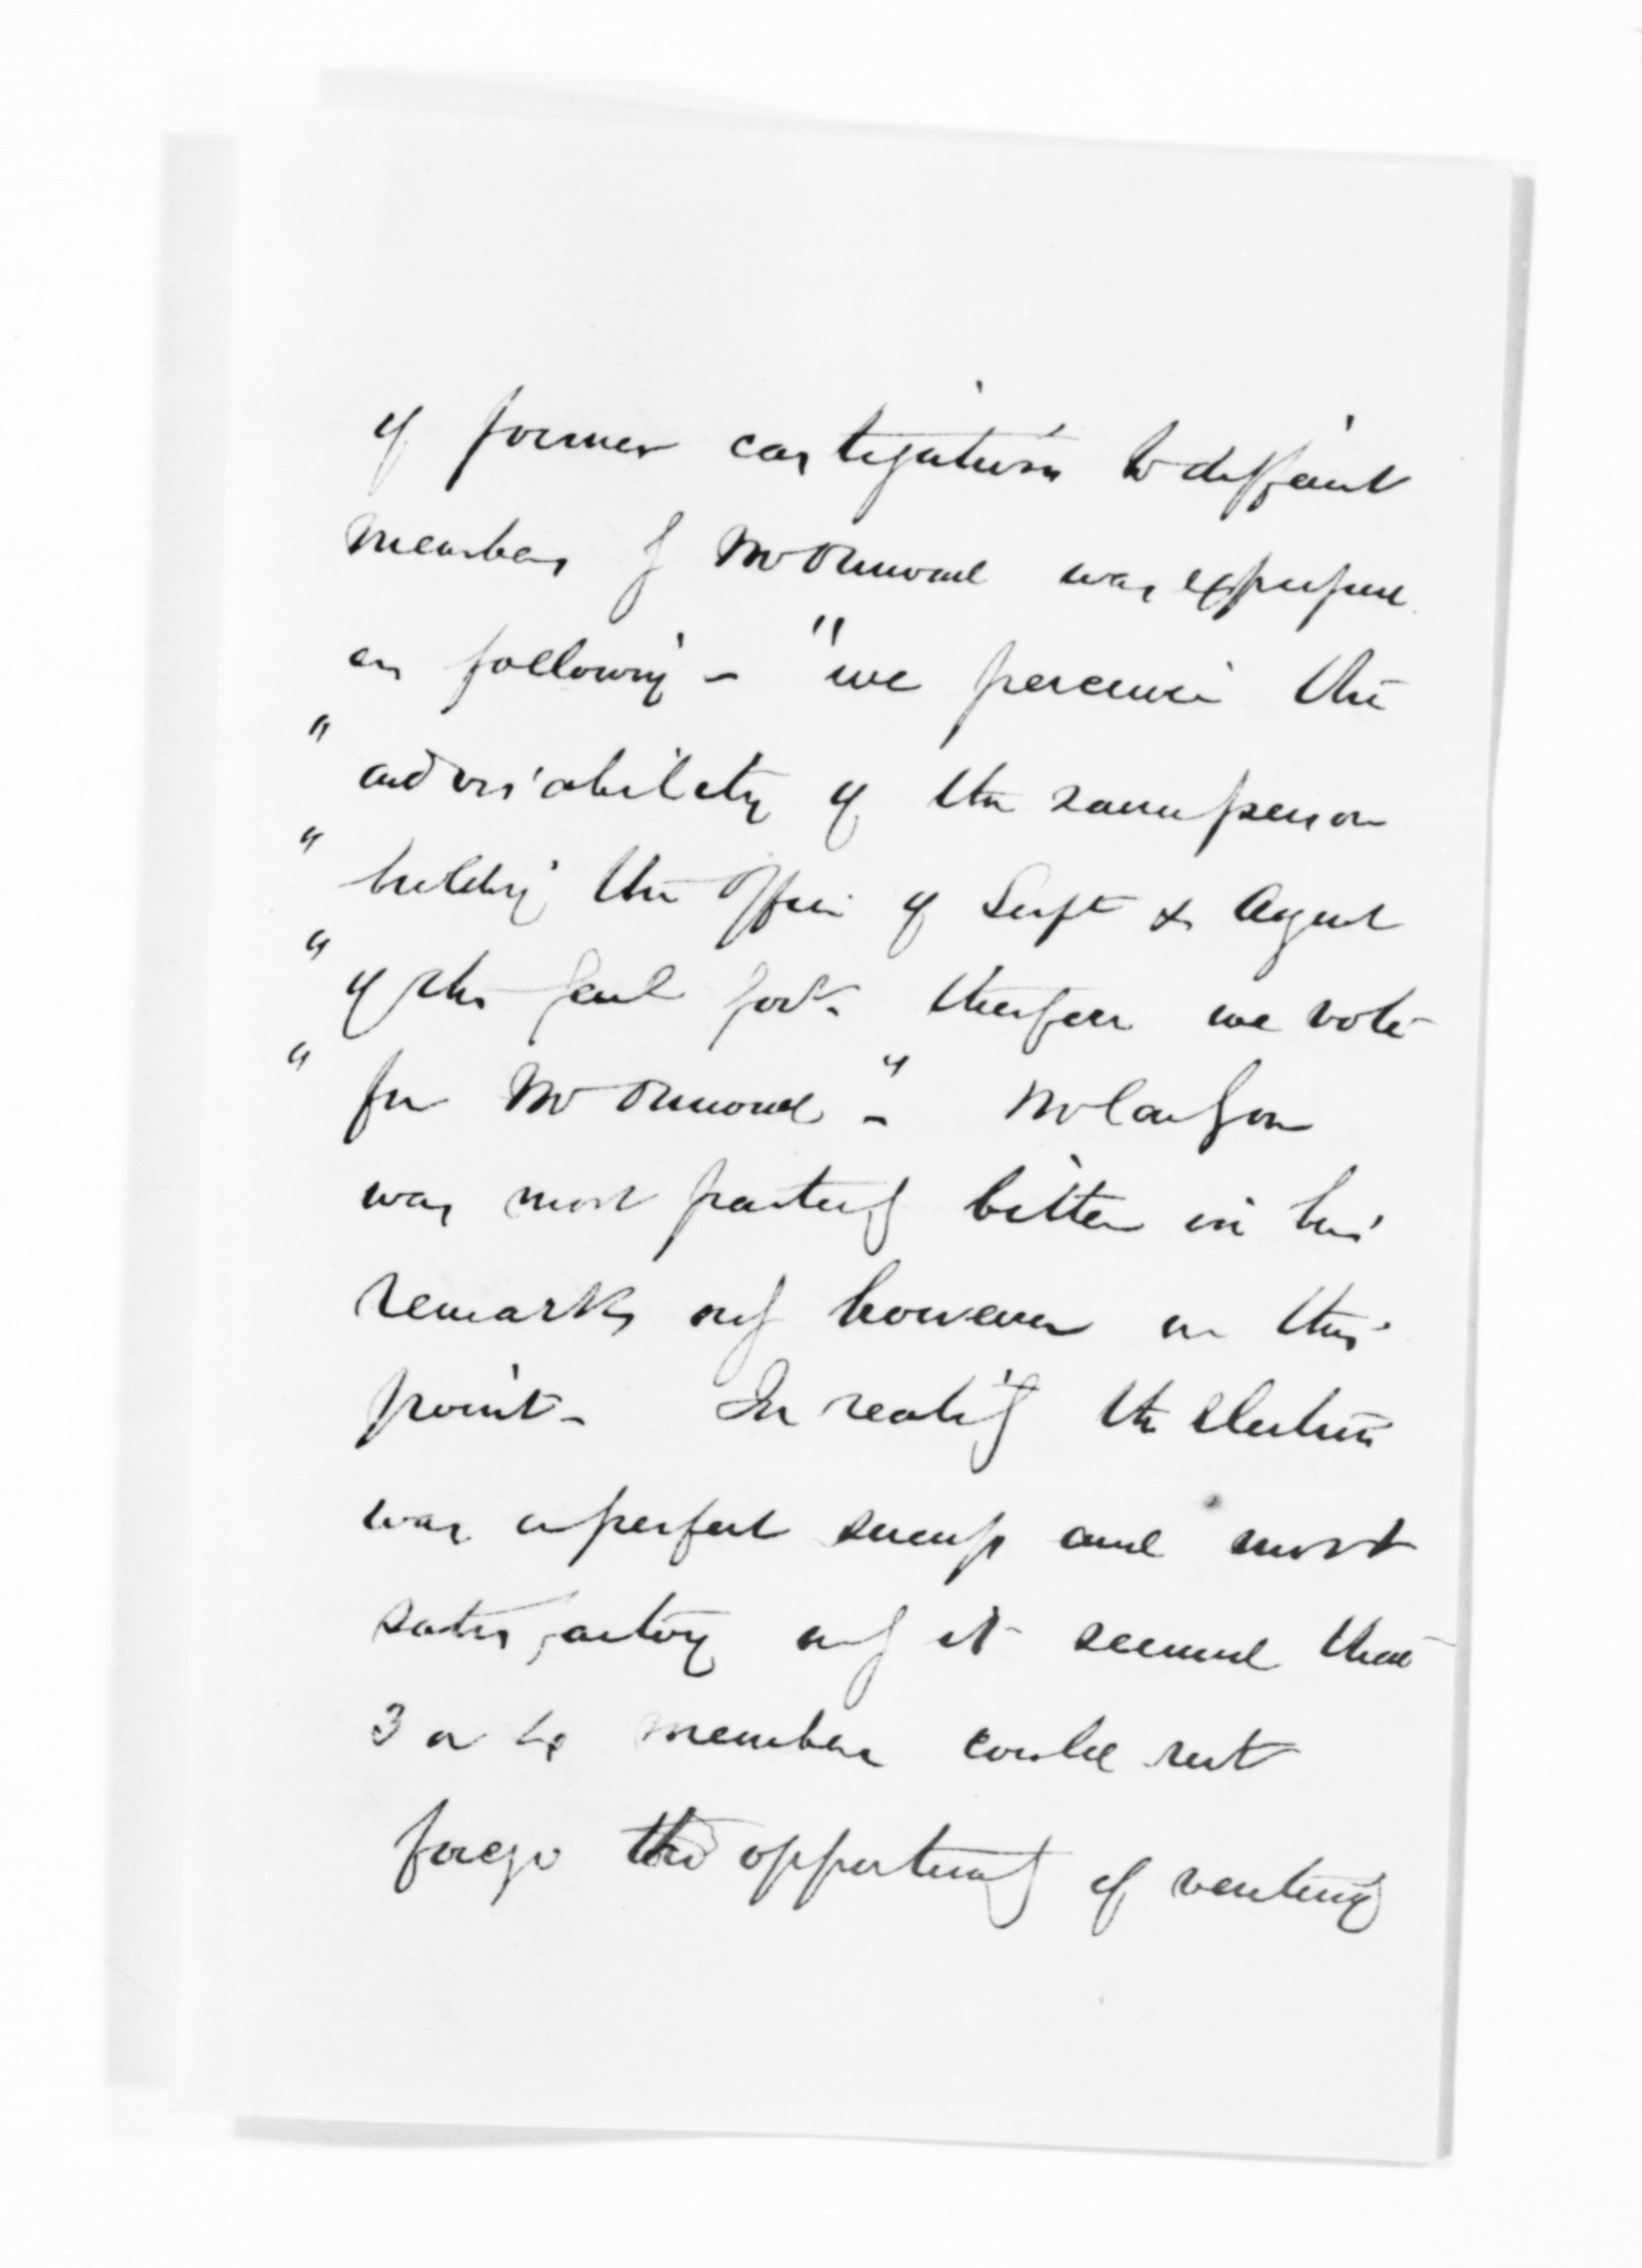 of former castigations to different
members of Mr Ormond was expressed
as following - "we perceive the
" advisability of the same person
" holding the Office of Supt & Agent
" of the Genl Govt. therefore we vote
" for Mr Ormond - " McLean
was most bitter in his
remarks only however on this
point - In reality the Election
was a perfect sweep and most
satisfactory only it seemed that
3 or 4 member could not
forego the opportunity of venting